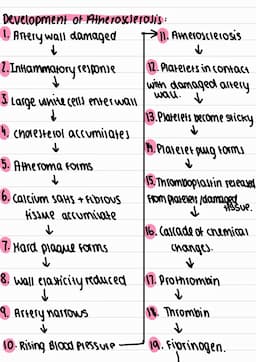 Development of Atherosclerosis:
1. Artery wall damaged
2. Inflammatory response
3. Large white cells enter wall
4. cholesterol accumlates
5. Atheroma forms
6. Calcium salts + fibrous
tissue accumlate
7. Hard plaque forms
8. Wall elasticity reduced
9. Artery narrows
10. Rising Blood Pressure
11. Atherosclerosis
12. Platelets in contact
with damaged artery
wall.
13. Platelets become sticky
14. Platelet plug forms
15. Thromboplastin released
from platelets/damaged
tissue.
16. Cascade of chemical
changes.
17. Prothrombin
18. Thrombin
19. Fibrinogen.